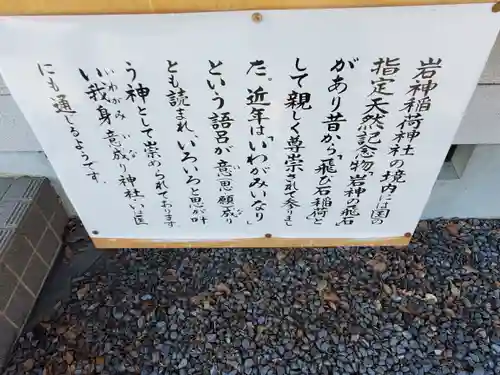 岩神稲荷神社の境内には国の
指定天然記念物、岩神の飛石
があり昔から「飛び石稲荷」と
して親しく尊崇されて参りまし
た。近年は「いわがみいなり」
という語呂が意思願成り
とも読まれ、いろいろと思が叶
う神として崇められております
い我身意成り神社いは医
いわがみいなり
にも通じるようです。